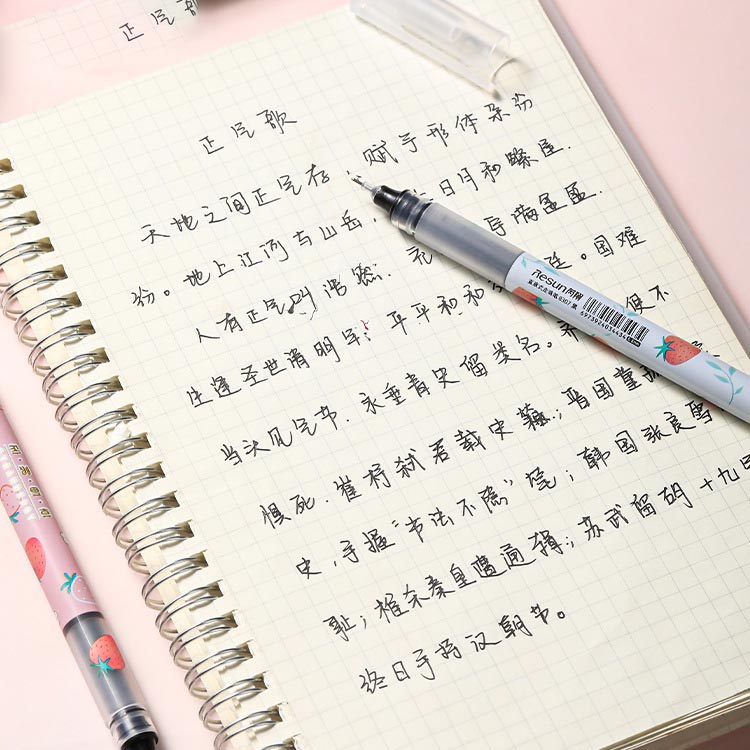 正气歌
正气歌
天地之间正气存，赋予形体杂纷
纷。地上江河与山岳，日月和繁星.
人有正气叫浩然.充满
生逢圣世清明年；平平和和 廷。困难
当头见气节.永垂青史留美名。 但不
惧死.崔杼弑君载史籍；晋国董狐
史，手握"书法不隐"笔；韩国张良
耻；椎杀秦皇遭通缉；苏武留胡十九
终日手持汉朝节。
Resun
直液式走珠笔
6973924034434